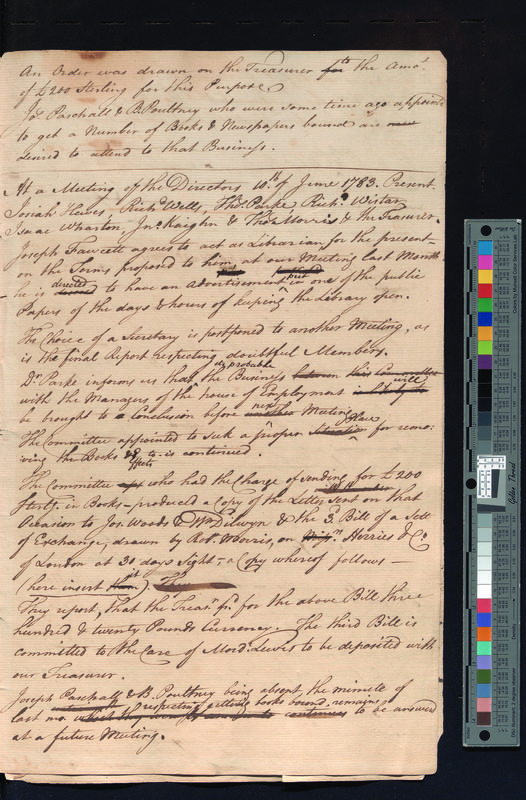 An Order was drawn on the Treasurer for the Amot.
of £200 Sterling for this Purpose
Jos. Paschall & B. Poultney who were some time ago appointd
to get a Number of Books & Newspapers bound are now
desired to attend to that Business.
At a Meeting of the Directors 10th. of June 1783. Present.
Josiah Hewes, Richd. Wells, Thos. Parke, Richd. Wistar,
Isaac Wharton, Jno. Kaighn & Thos. Morris & the Treasurer.
Joseph Fawcett agrees to act as Librarian for the present
on the Terms proposed to him at our Meeting last Month
he is directed to have an advertisement put in one of the public
Papers of the days & hours of keeping the Library open.
The Choice of a Secretary is postponed to another Meeting, as
is the final Report respecting doubtful Members.
Dr. Parke informs us that the Business
with the Managers of the house of Employment will
be brought to a Conclusion before next Meeting
The Committee appointed to seek a proper Place for remo:
ving the Books & effects is continued.
The Committee who had the Charge of sending for £200
Sterlg. in Books – produced a Copy of the Letter sent on that
Occasion to Jos. Woods & Wm. Dilwyn & the 3d. Bill of a sett
of Exchange, drawn by Robt. Morris, on Herries & Co.
of London at 30 days sight – a Copy whereof follows –
(here insert it)
They report, that the Treasr. for the above Bill three
hundred & twenty Pounds Currency. The third Bill is
committed to the Care of Mord: Lewis to be deposited with
our Treasurer.
Joseph Paschall & B. Poultney being absent, the minute of
last mo. respecting getting books bound remains
to be answered
at a future Meeting.